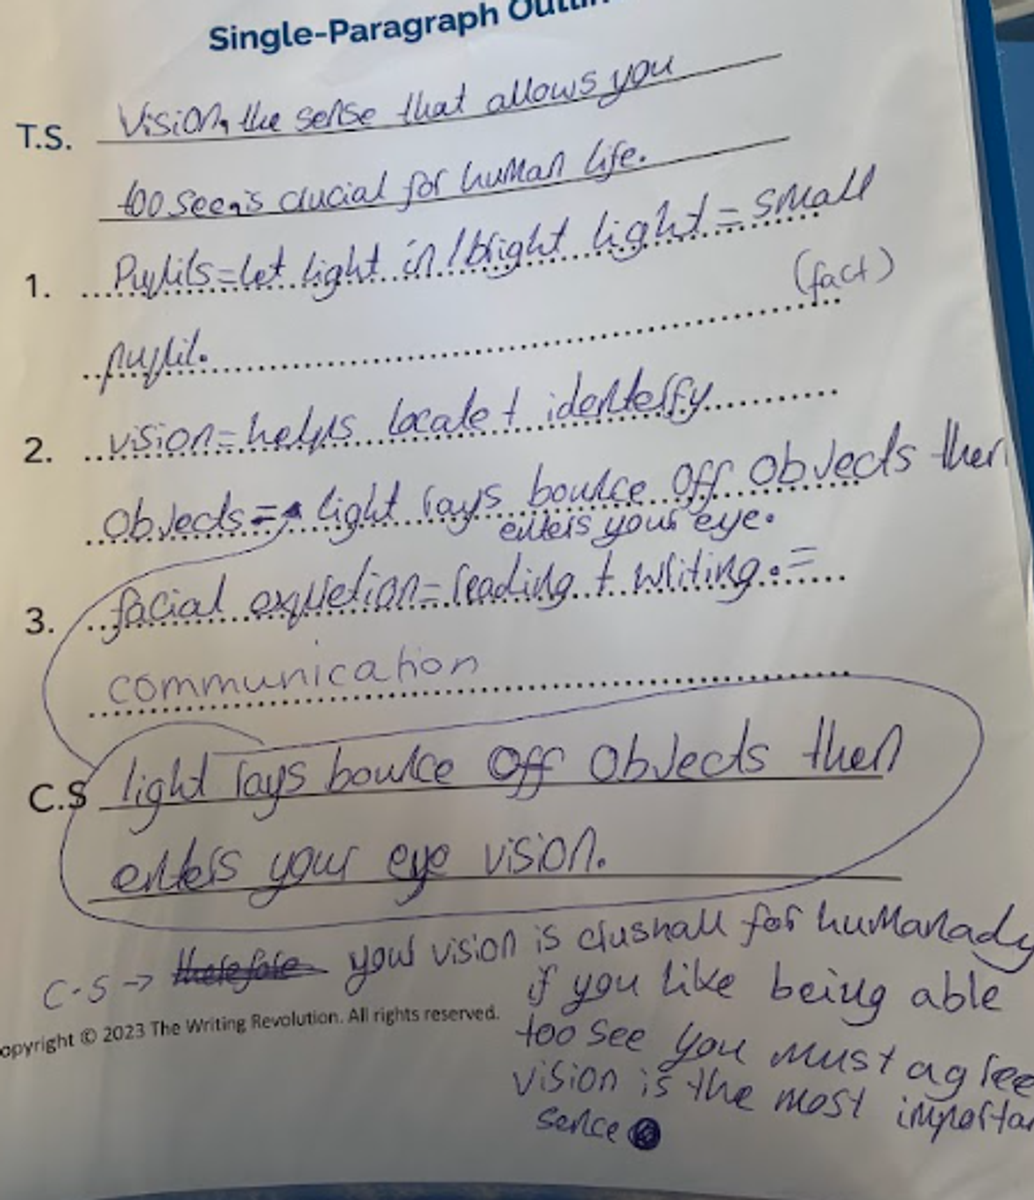 Single-Paragraph Outlin
T.S. Vision, the sense that allows you
too see, is crucial for human life.
1. Pupils=let light in/bright light = small
pupil. (fact)
2. vision=helps locate + identeify
objects= light rays bounce off objects then
enters your eye.
3. facial expretion=reading + writing. =
communication
C.S light rays bounce off objects then
enters your eye vision.
C-S → therefore your vision is crushall for humanady
if you like being able
too see you must agree
vision is the most importan
sence
opyright © 2023 The Writing Revolution. All rights reserved.